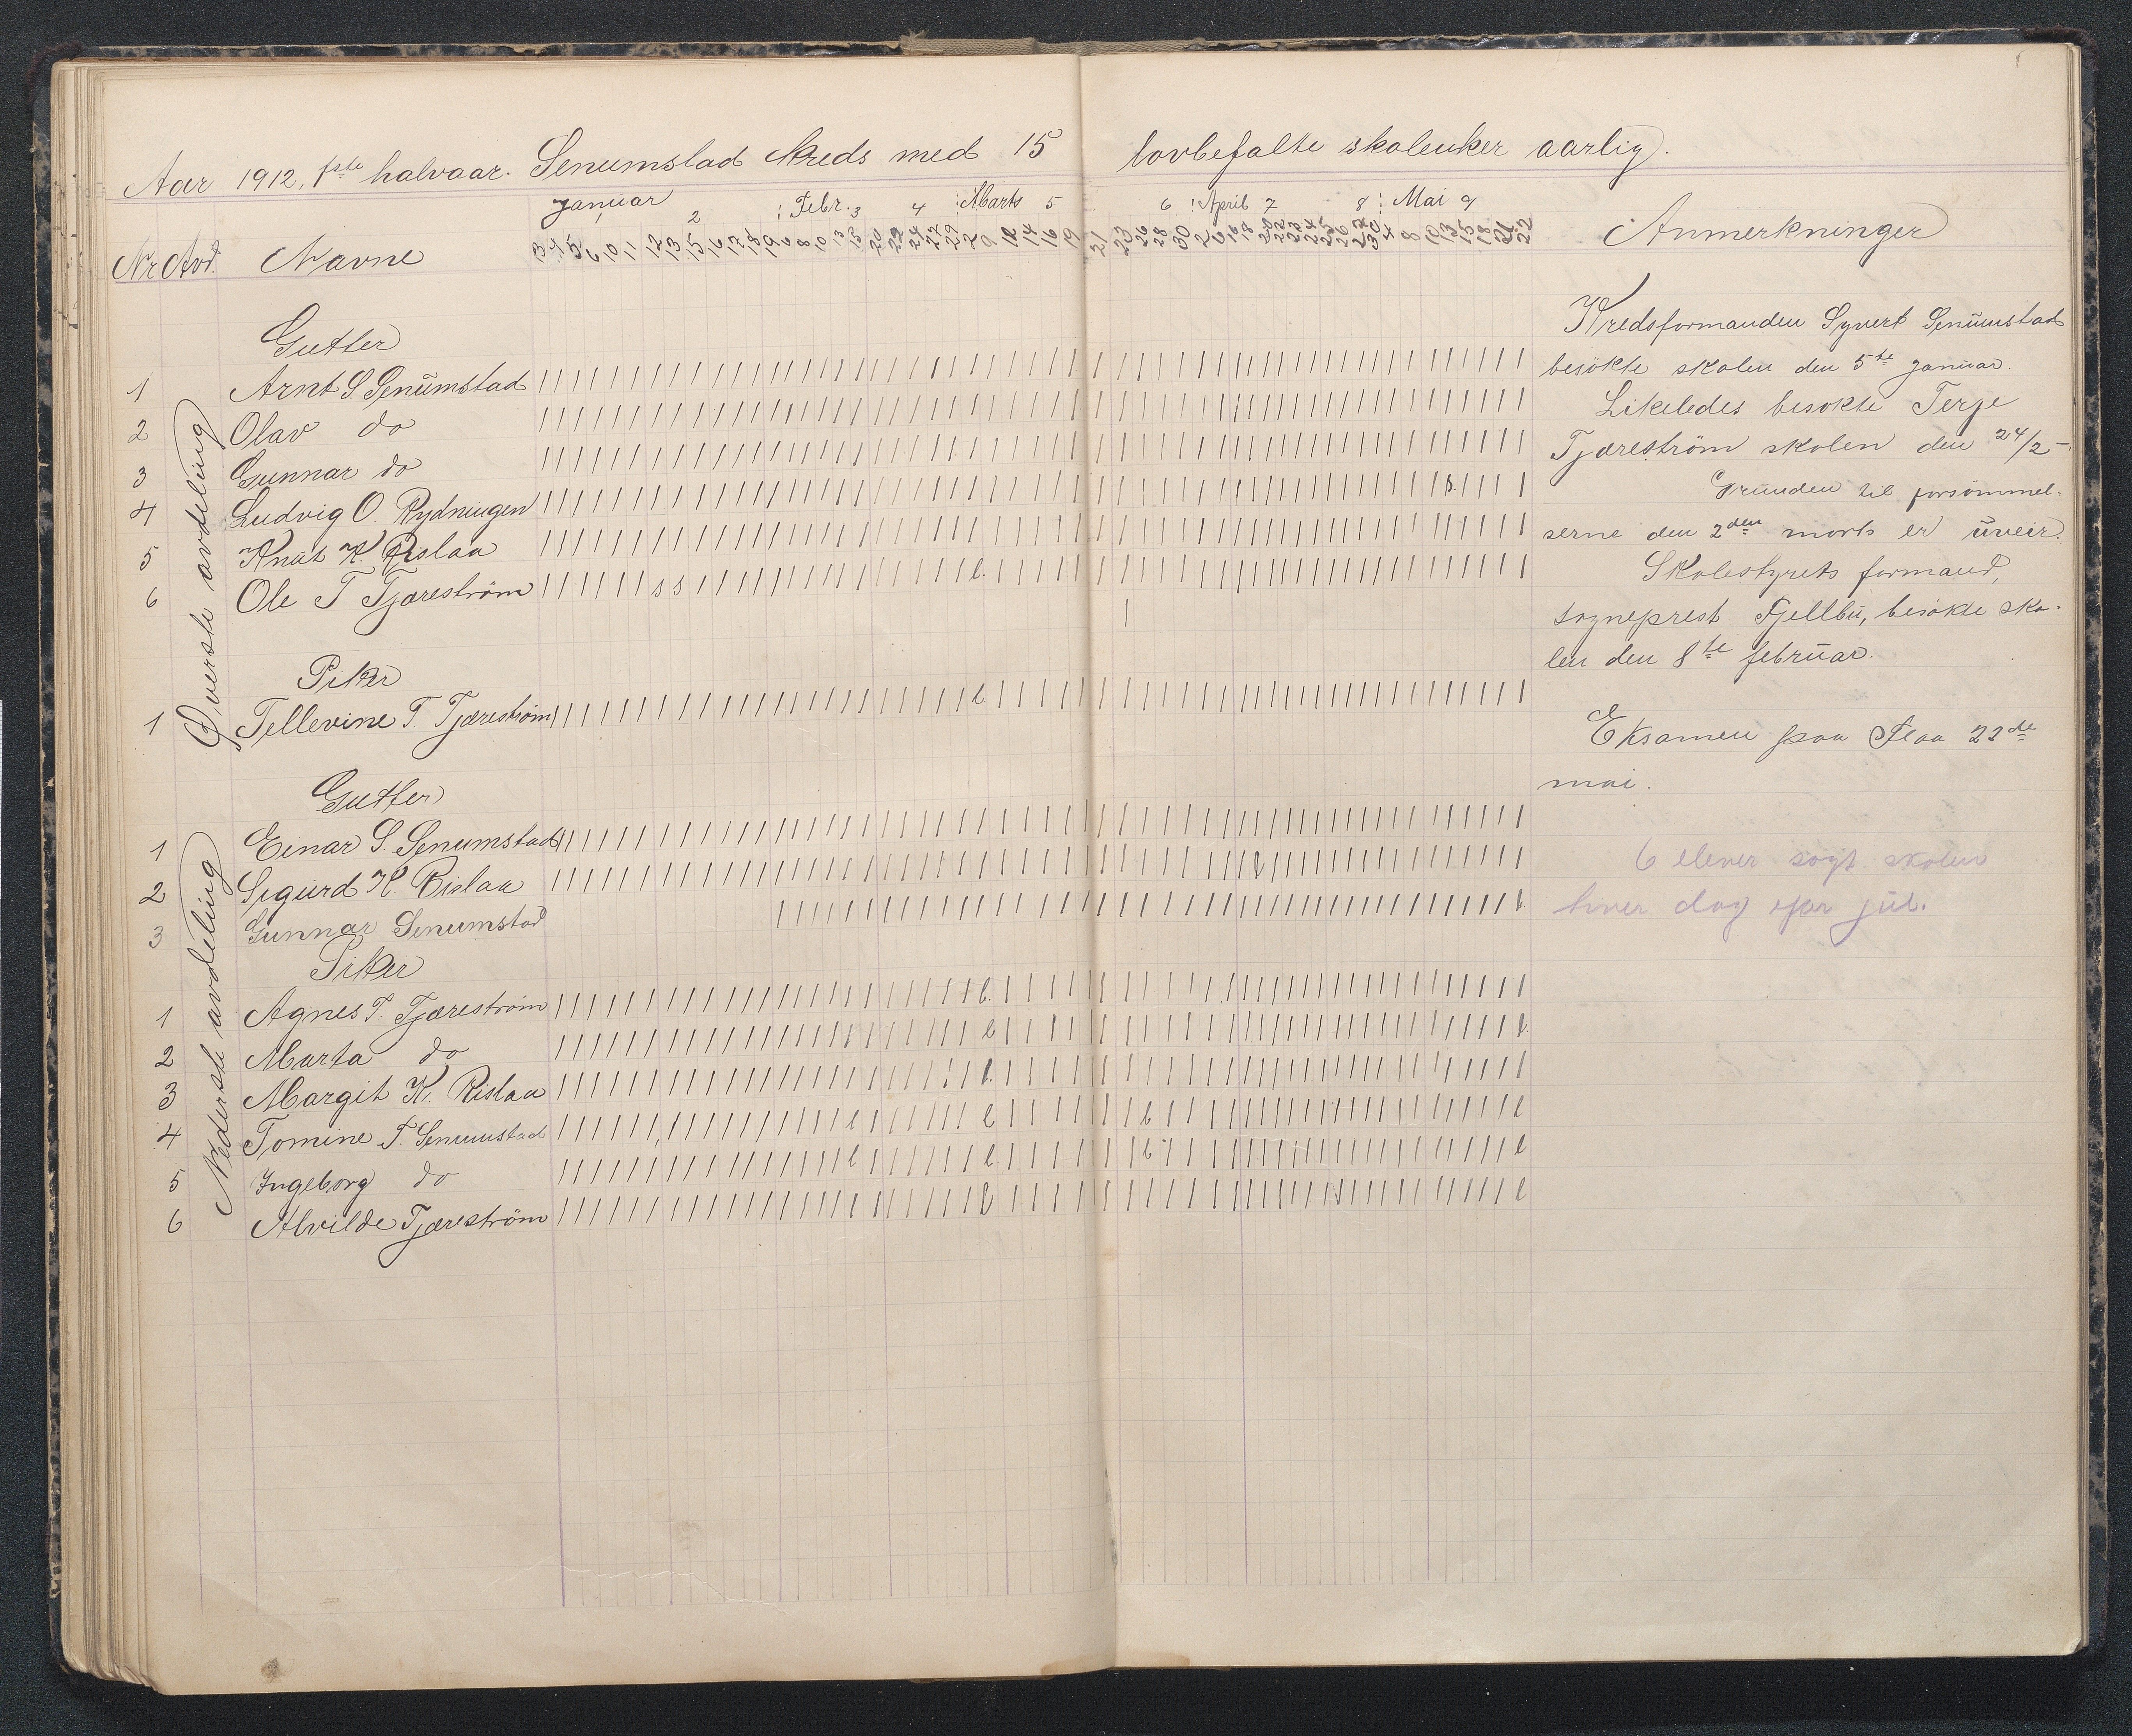 Aar 1912, 1ste halvaar. Senumstad Kreds med 15 lovbefalte skoleuker aarlig.
Januar : Febr. : Marts : April : Mai
1 2 3 4 5 6 7 8 9
Nr Avd. Navne Anmerkninger
3 4 5 6 10 11 12 13 15 16 17 18 19 6 8 10 13 15 20 22 24 27 29 2 9 12 14 16 19 21 23 26 28 30 2 6 16 18 20 22 23 24 25 26 27 30 4 8 10 13 15 18 21 22
Øverste avdeling
Gutter
1 Arnt S. Senumstad
2 Olav do
3 Gunnar do
4 Ludvig O. Rydningen
5 Knut K. Rislaa
6 Ole T Tjæreström
Piker
1 Tellevine T. Tjæreström
Nederste avdeling
Gutter
1 Einar S. Senumstad
2 Sigurd K. Rislaa
3 Gunnar Senumstad
Piker
1 Agnes T. Tjæreström
2 Marta do
3 Margit K. Rislaa
4 Tomine T. Senumstad
5 Ingeborg do
6 Alvilde Tjæreström
Kredsformanden Syvert Senumstad
besökte skolen den 5te januar.
Likeledes besökte Terje
Tjæreström skolen den 24/2 –
Grunden til forsömmel-
serne den 2den marts er uveir.
Skolestyrets formand,
sogneprest Fjellbu, besökte sko-
len den 8te februar.
Eksamen paa Flaa 22de
mai.
6 elever sögt skolen
hver dag före jul.